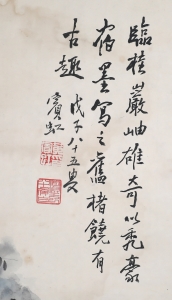 臨桂巖岫雄奇以禿豪
宿墨寫之舊楮饒有
古趣 戊子八十五叟
賓虹